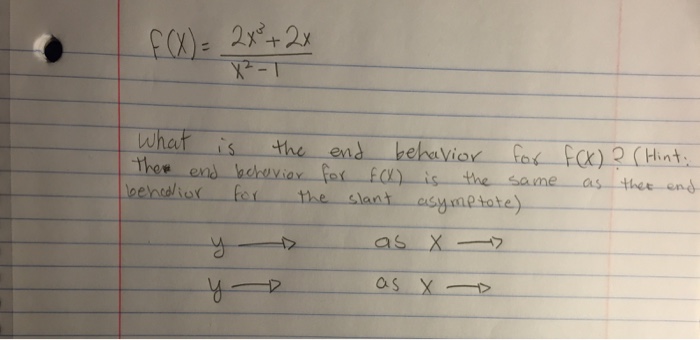 f(x) = 2x³ + 2x
x² - 1
What is the end behavior for f(x)? (Hint:
the end behavior for f(x) is the same as the end
behavior for the slant asymptote)
y → as x →
y → as x →